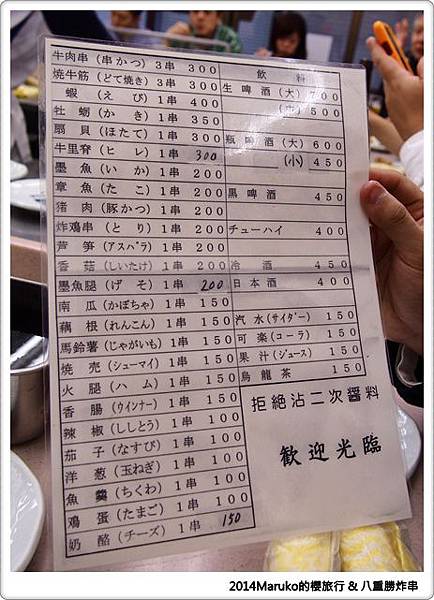 牛肉串 (串かつ) 3串 300
焼牛筋 (どて焼き) 3串 300
蝦 (えび) 1串 400
牡蛎 (かき) 1串 350
扇貝 (ほたて) 1串 300
牛里脊 (ヒレ) 1串 300
墨魚 (いか) 1串 200
章魚 (たこ) 1串 200
猪肉 (豚かつ) 1串 200
炸鶏串 (とり) 1串 200
芦笋 (アスパラ) 1串 200
香菇 (しいたけ) 1串 200
墨魚腿 (げそ) 1串 200
南瓜 (かぼちゃ) 1串 150
藕根 (れんこん) 1串 150
馬鈴薯 (じゃがいも) 1串 150
焼売 (シューマイ) 1串 150
火腿 (ハム) 1串 150
香腸 (ウインナー) 1串 150
辣椒 (ししとう) 1串 100
茄子 (なすび) 1串 100
洋葱 (玉ねぎ) 1串 100
魚羹 (ちくわ) 1串 100
鶏蛋 (たまご) 1串 100
奶酪 (チーズ) 1串 150
飲料
生啤酒 (大) 700
(中) 500
瓶啤酒 (大) 600
(小) 450
黒啤酒 450
チューハイ 400
冷酒 450
日本酒 400
汽水 (サイダー) 150
可楽 (コーラ) 150
果汁 (ジュース) 150
烏龍茶 150
拒絶沾二次醤料
歓迎光臨
2014Maruko的櫻旅行 & 八重勝炸串